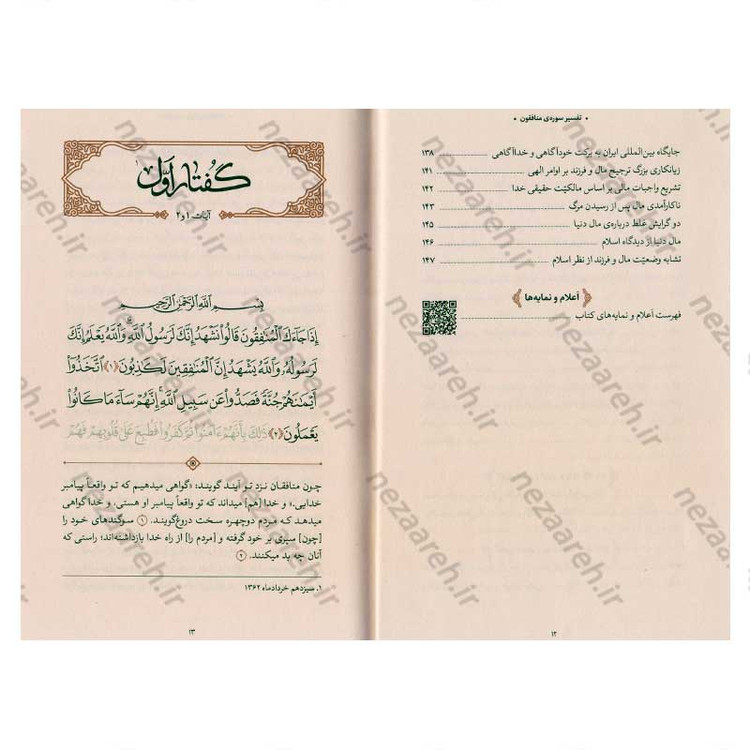 • تفسیر سوره‌ی منافقون •
جایگاه بین‌المللی ایران به برکت خودآگاهی و خداآگاهی ۱۳۸
زیانکاری بزرگ ترجیح مال و فرزند بر اوامر الهی ۱۴۱
تشریع واجبات مالی بر اساس مالکیّت حقیقی خدا ۱۴۲
ناکارآمدی مال پس از رسیدن مرگ ۱۴۳
دو گرایش غلط درباره‌ی مال دنیا ۱۴۵
مال دنیا از دیدگاه اسلام ۱۴۶
تشابه وضعیّت مال و فرزند از نظر اسلام ۱۴۷
أعلام و نمایه‌ها
فهرست أعلام و نمایه‌های کتاب
۱۲
گفتار اوّل۱
آیات ۱ و ۲
بِسْمِ اللَّهِ الرَّحْمَٰنِ الرَّحِيمِ
إِذَا جَاءَكَ الْمُنَافِقُونَ قَالُوا نَشْهَدُ إِنَّكَ لَرَسُولُ اللَّهِ وَاللَّهُ يَعْلَمُ إِنَّكَ
لَرَسُولُهُ وَاللَّهُ يَشْهَدُ إِنَّ الْمُنَافِقِينَ لَكَاذِبُونَ ﴿۱﴾ اتَّخَذُوا
أَيْمَانَهُمْ جُنَّةً فَصَدُّوا عَن سَبِيلِ اللَّهِ إِنَّهُمْ سَاءَ مَا كَانُوا
يَعْمَلُونَ ﴿۲﴾ ذَٰلِكَ بِأَنَّهُمْ آمَنُوا ثُمَّ كَفَرُوا فَطُبِعَ عَلَىٰ قُلُوبِهِمْ فَهُمْ
چون منافقان نزد تو آیند گویند: «گواهی میدهیم که تو واقعاً پیامبر
خدایی.» و خدا [هم] میداند که تو واقعاً پیامبر او هستی، و خدا گواهی
میدهد که مردم دوچهره سخت دروغ‌گویند. ۱ سوگندهای خود را
[چون] سپری بر خود گرفته و [مردم را] از راه خدا بازداشته‌اند؛ راستی که
آنان چه بد میکنند. ۲
۱. سیزدهم خردادماه ۱۳۶۲
۱۳
nezaareh.ir